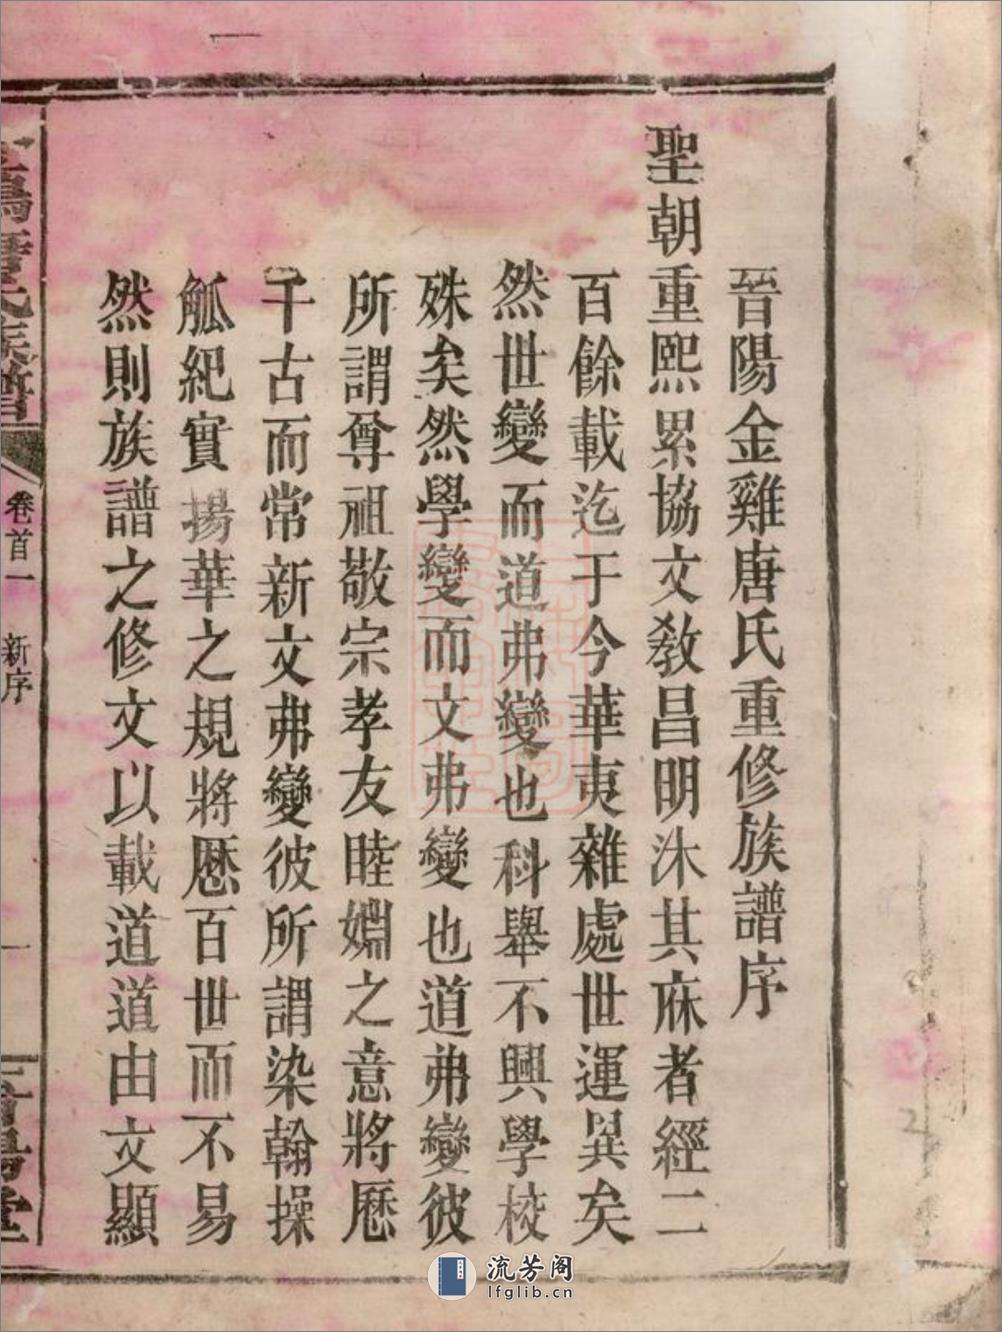 晉陽金雞唐氏重修族譜序
聖朝重熙累協文教昌明沐其庥者經二
百餘載迄于今華夷雜處世運異矣
然世變而道弗變也科舉不興學校
殊矣然學變而文弗變也道弗變彼
所謂尊祖敬宗孝友睦婣之意將歷
千古而常新文弗變彼所謂染翰操
觚紀實揚華之規將歷百世而不易
然則族譜之修文以載道道由文顯
卷首一 新序 一
流芳阁
lfglib.cn
2